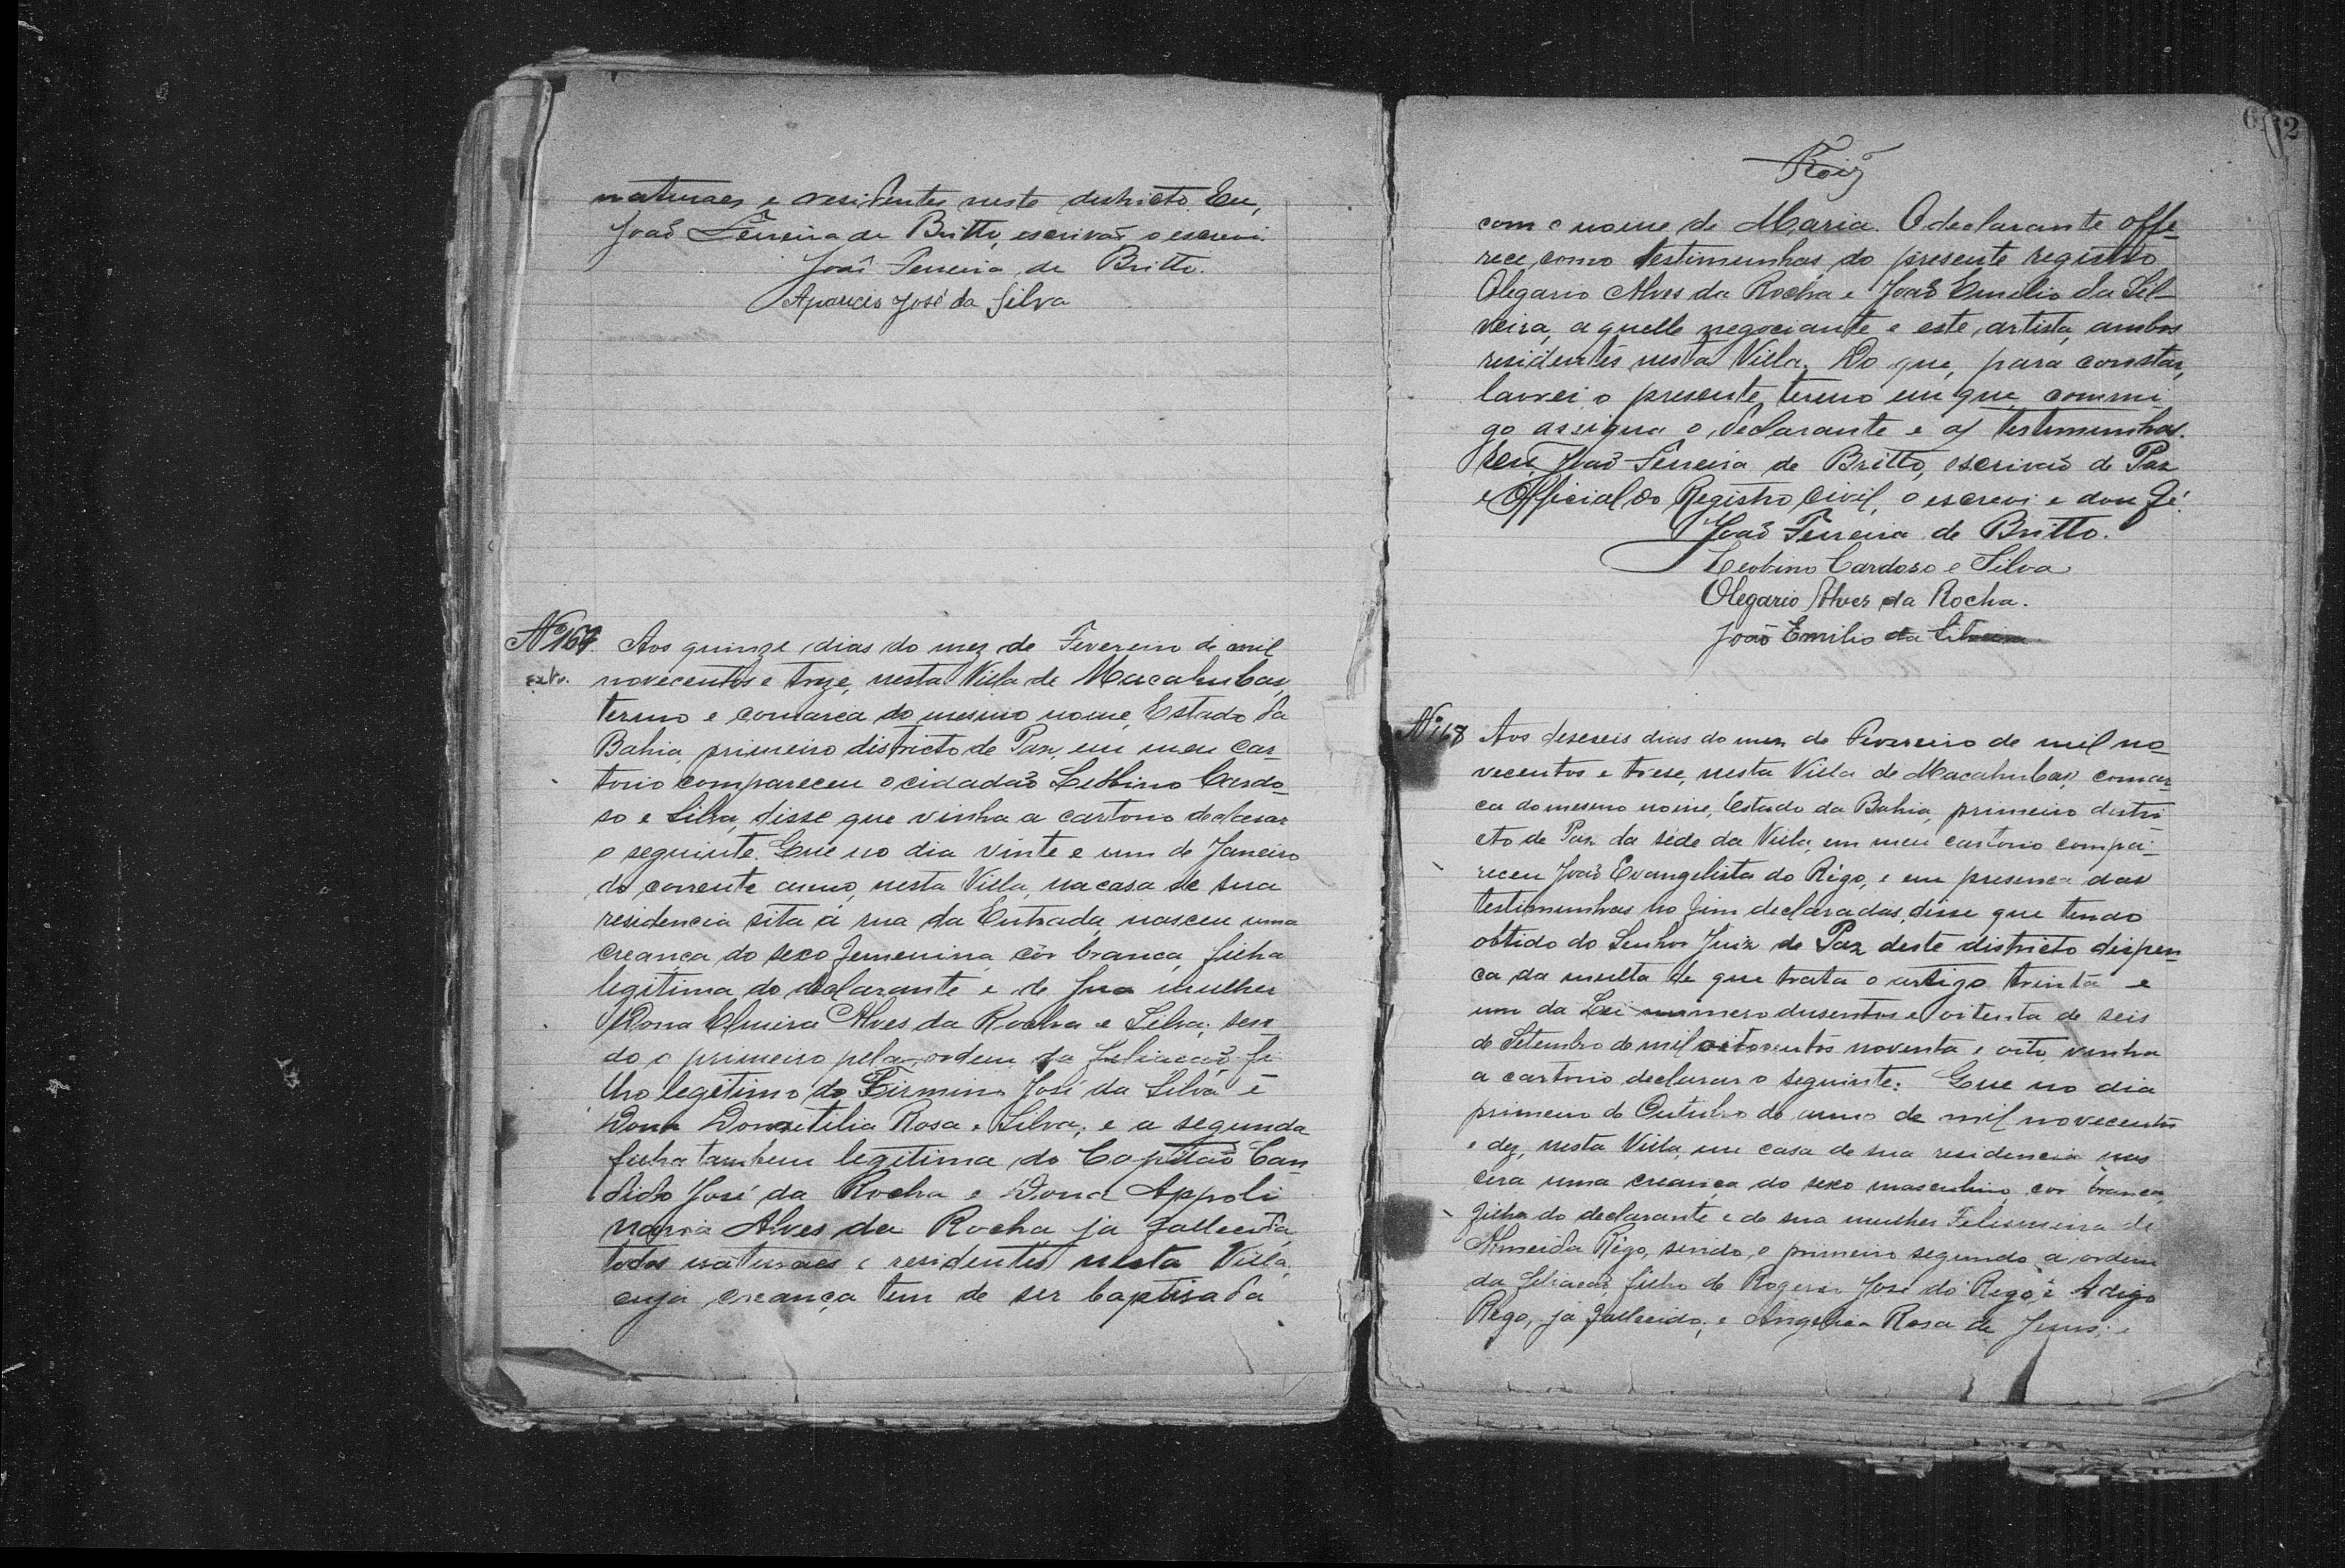 naturaes e residentes neste destricto. Eu,
João Ferreira de Britto, escrivão o escrevi.
João Ferreira de Britto.
Aparicio José da Silva
Nº 167. Aos quinze dias do mez de Fevereiro de mil
novecentos e treze, nesta Villa de Macahubas,
termo e comarca do mesmo nome, Estado da
Bahia, primeiro districto de Paz, em meu car-
torio compareceu o cidadão Leobino Cardo-
so e Silva, disse que vinha a cartorio declarar
o seguinte. Que no dia vinte e um de Janeiro
do corrente anno, nesta Villa, na casa de sua
residencia sita á rua da Entrada, nasceu uma
creança do sexo femenino, côr branca, filha
legitima do declarante e de sua mulher
Dona Elmira Alves da Rocha e Silva; sen-
do o primeiro pela ordem da filiação, fi-
lho legitimo do Firmino José da Silva e
Dona Domitilia Rosa e Silva; e a segunda
filha tambem legitima do Capitão Can-
dido José da Rocha e Dona Appoli
naria Alves da Rocha, ja fallecida,
todos naturaes e residentes nesta Villa,
cuja creança tem de ser baptisada
632
com o nome de Maria. O declarante offe-
rece, como testimunhas do presente registro
Olegario Alves da Rocha e João Emilio da Sil-
veira, aquelle negociante e este, artista, ambos
residentes nesta Villa. Do que, para constar,
lavrei o presente termo em que commi-
go assigna o declarante e as testimunhas.
Eu, João Ferreira de Britto, escrivão de Paz
e Official do Registro Civil, o escrevi e dou fé.
João Ferreira de Britto.
Leobino Cardoso e Silva
Olegario Alves da Rocha.
João Emilio da Silveira
Nº 168 Aos deseseis dias do mez de Fevereiro de mil no-
vecentos e trese, nesta Villa de Macahubas, comar-
ca do mesmo nome, Estado da Bahia, primeiro distri-
cto de Paz da séde da Villa, em meu cartorio compa-
receu João Evangelista do Rêgo, e em presença das
testimunhas no fim declaradas, disse que tendo
obtido do Senhor Juiz de Paz deste districto dispen-
ca da multa de que trata o artigo trinta e
um da Lei numero dusentos e oitenta de seis
de Setembro de mil oitocentos noventa e oito, vinha
a cartorio declarar o seguinte: Que no dia
primeiro de Outubro do anno de mil novecentos
e dez, nesta Villa, em casa de sua residencia nas
cera uma creança do sexo masculino, cor branca,
filha do declarante e de sua mulher Felismina de
Almeida Rêgo, sendo, o primeiro segundo a ordem
da filiacão, filho de Rogerio José do Rêgo, e digo
Rêgo, ja fallecido; e Angelica Rosa de Jesus; e